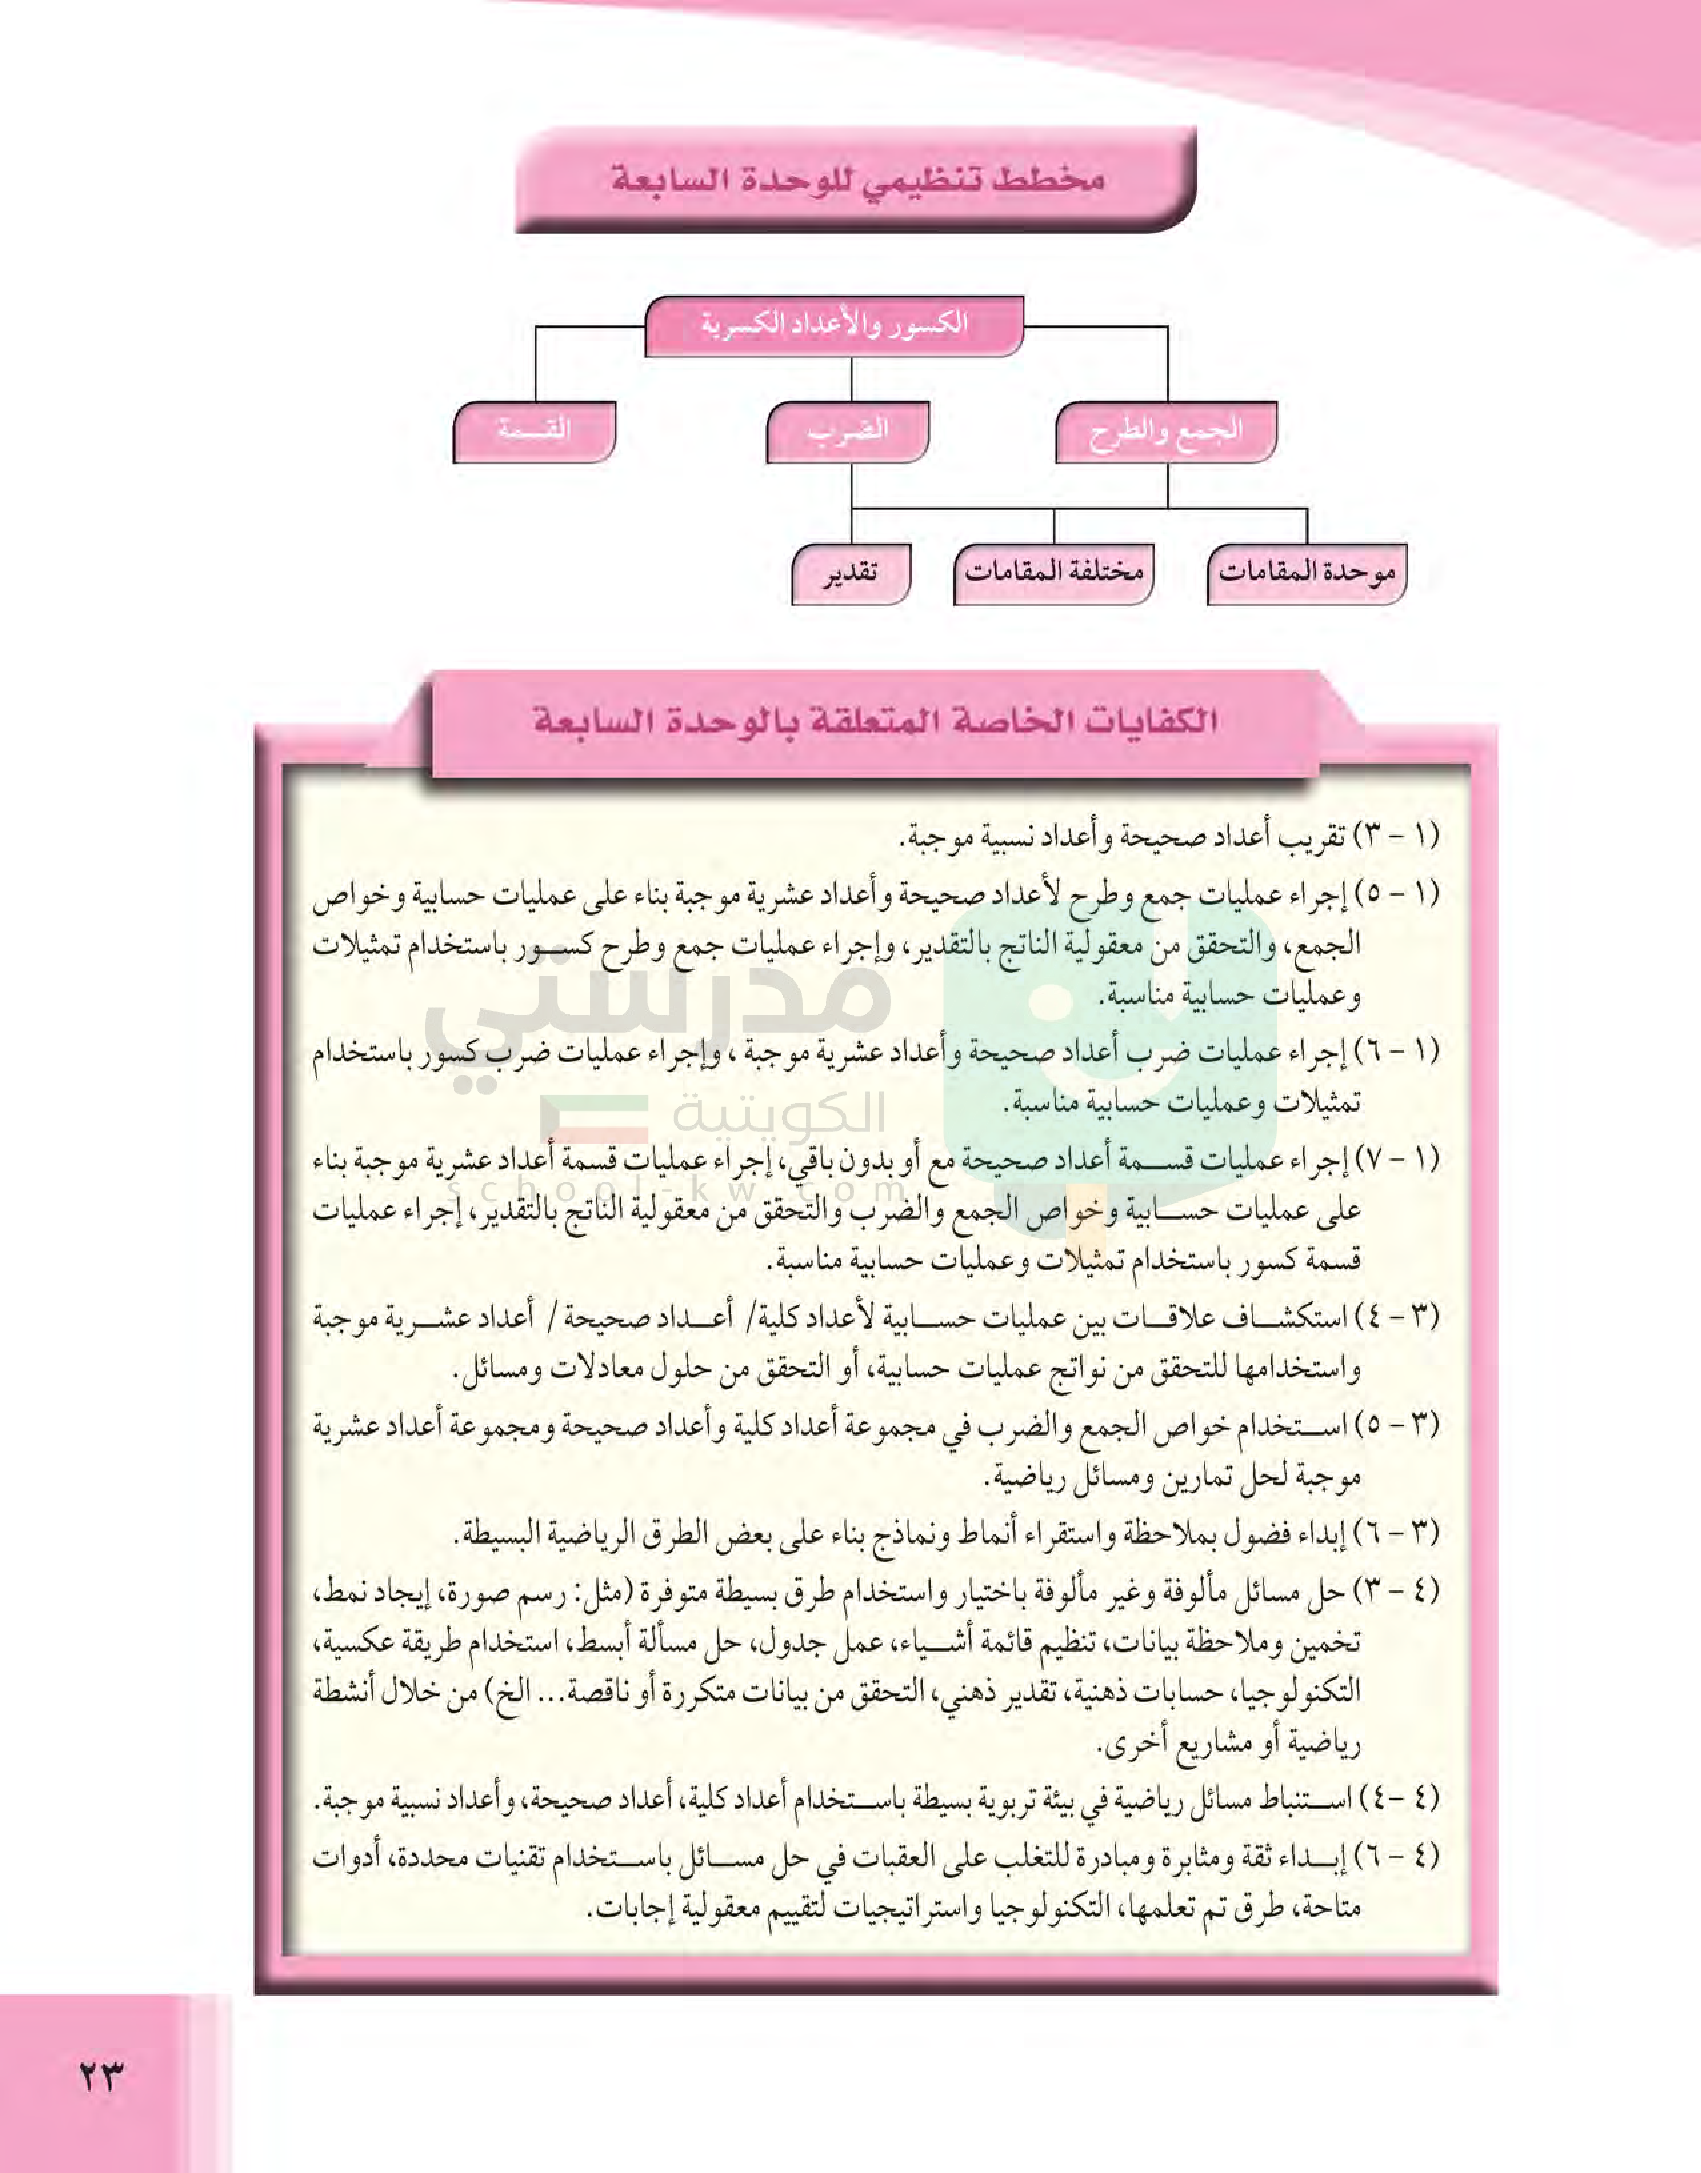 مخطط تنظيمي للوحدة السابعة
الكسور والأعداد الكسرية
الجمع والطرح
الضرب
القسمة
موحدة المقامات
مختلفة المقامات
تقدير
الكفايات الخاصة المتعلقة بالوحدة السابعة
(١ – ٣) تقريب أعداد صحيحة وأعداد نسبية موجبة.
(١ – ٥) إجراء عمليات جمع وطرح لأعداد صحيحة وأعداد عشرية موجبة بناء على عمليات حسابية وخواص
الجمع، والتحقق من معقولية الناتج بالتقدير، وإجراء عمليات جمع وطرح كسور باستخدام تمثيلات
وعمليات حسابية مناسبة.
(١ – ٦) إجراء عمليات ضرب أعداد صحيحة وأعداد عشرية موجبة ، وإجراء عمليات ضرب كسور باستخدام
تمثيلات وعمليات حسابية مناسبة.
(١ – ٧) إجراء عمليات قسمة أعداد صحيحة مع أو بدون باقي، إجراء عمليات قسمة أعداد عشرية موجبة بناء
على عمليات حسابية وخواص الجمع والضرب والتحقق من معقولية الناتج بالتقدير، إجراء عمليات
قسمة كسور باستخدام تمثيلات وعمليات حسابية مناسبة.
(٣ – ٤) استكشاف علاقات بين عمليات حسابية لأعداد كلية/ أعداد صحيحة / أعداد عشرية موجبة
واستخدامها للتحقق من نواتج عمليات حسابية، أو التحقق من حلول معادلات ومسائل.
(٣ – ٥) استخدام خواص الجمع والضرب في مجموعة أعداد كلية وأعداد صحيحة ومجموعة أعداد عشرية
موجبة لحل تمارين ومسائل رياضية.
(٣ – ٦) إبداء فضول بملاحظة واستقراء أنماط ونماذج بناء على بعض الطرق الرياضية البسيطة.
(٤ – ٣) حل مسائل مألوفة وغير مألوفة باختيار واستخدام طرق بسيطة متوفرة (مثل: رسم صورة، إيجاد نمط،
تخمين وملاحظة بيانات، تنظيم قائمة أشياء، عمل جدول، حل مسألة أبسط، استخدام طريقة عكسية،
التكنولوجيا، حسابات ذهنية، تقدير ذهني، التحقق من بيانات متكررة أو ناقصة... الخ) من خلال أنشطة
رياضية أو مشاريع أخرى.
(٤ –٤) استنباط مسائل رياضية في بيئة تربوية بسيطة باستخدام أعداد كلية، أعداد صحيحة، وأعداد نسبية موجبة.
(٤ – ٦) إبداء ثقة ومثابرة ومبادرة للتغلب على العقبات في حل مسائل باستخدام تقنيات محددة، أدوات
متاحة، طرق تم تعلمها، التكنولوجيا واستراتيجيات لتقييم معقولية إجابات.
مدرستي
الكويتية
school-kw.com
٢٣